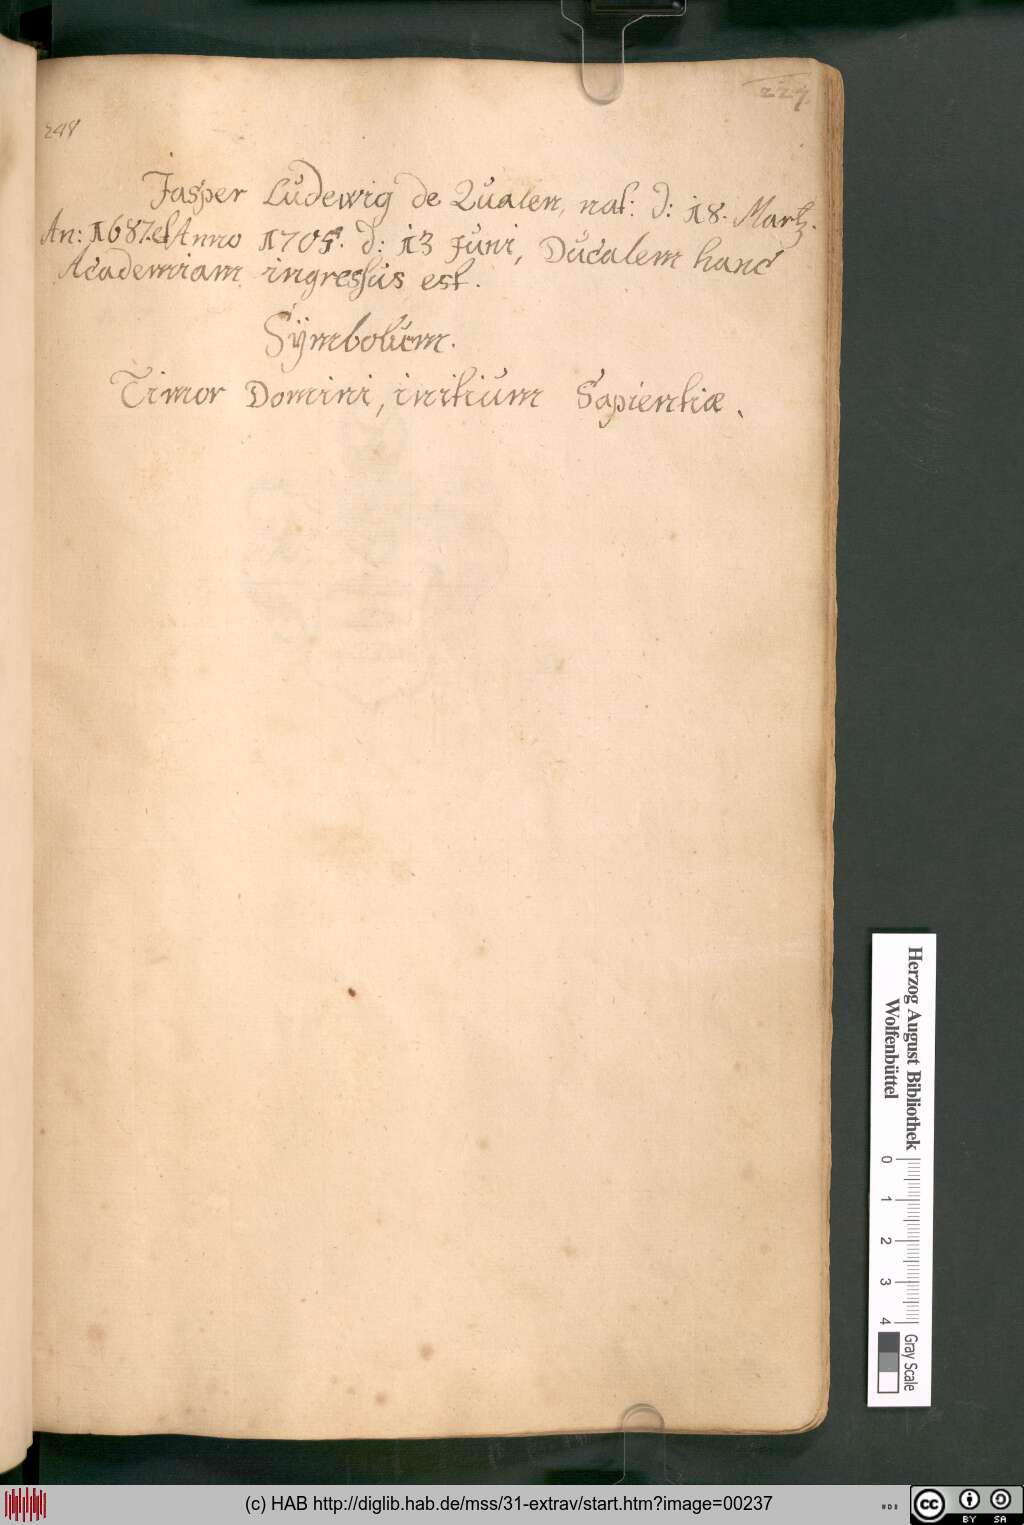 227
248
Jasper Ludewig de Qualen, nat: d: 18. Martz.
An: 1687. et Anno 1705. d: 13 Juni, Ducalem hanc
Academiam ingressus est.
Sÿmbolum.
Timor Domini, initium Sapientiæ.
Herzog August Bibliothek
Wolfenbüttel
0 1 2 3 4
Gray Scale
(c) HAB http://diglib.hab.de/mss/31-extrav/start.htm?image=00237
cc BY SA